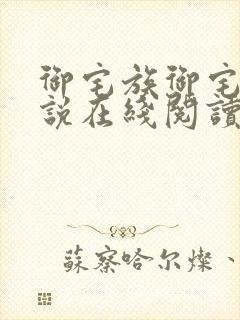 御宅族御宅
說在綫閱讀
蘇察哈尔燦、